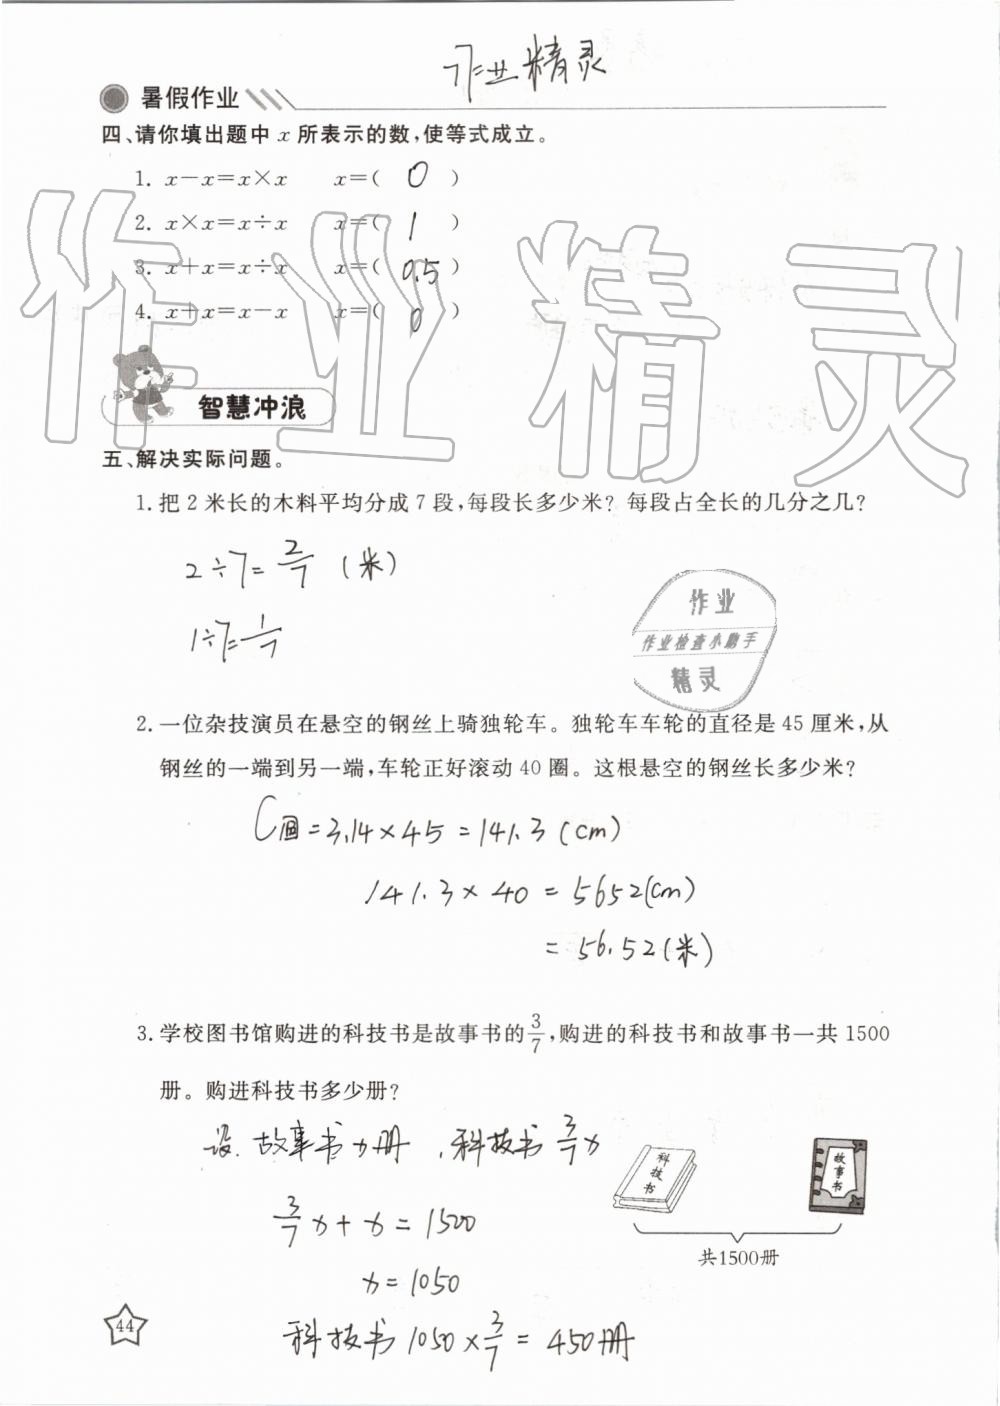 作业精灵
暑假作业
四、请你填出题中 x 所表示的数,使等式成立。
1. x－x＝x×x x＝( 0 )
2. x×x＝x÷x x＝( 1 )
3. x＋x＝x÷x x＝( 0.5 )
4. x＋x＝x－x x＝( 0 )
作业精灵
智慧冲浪
五、解决实际问题。
1. 把 2 米长的木料平均分成 7 段,每段长多少米? 每段占全长的几分之几?
2÷7=2/7 (米)
1÷7=1/7
作业
作业检查小助手
精灵
2. 一位杂技演员在悬空的钢丝上骑独轮车。独轮车车轮的直径是 45 厘米,从
钢丝的一端到另一端,车轮正好滚动 40 圈。这根悬空的钢丝长多少米?
C圆=3.14×45=141.3(cm)
141.3×40=5652(cm)
=56.52(米)
3. 学校图书馆购进的科技书是故事书的3/7,购进的科技书和故事书一共 1500
册。购进科技书多少册?
设故事书x册,科技书3/7x
科技书
故事书
3/7x+x=1500
共1500册
x=1050
44
科技书1050×3/7=450册